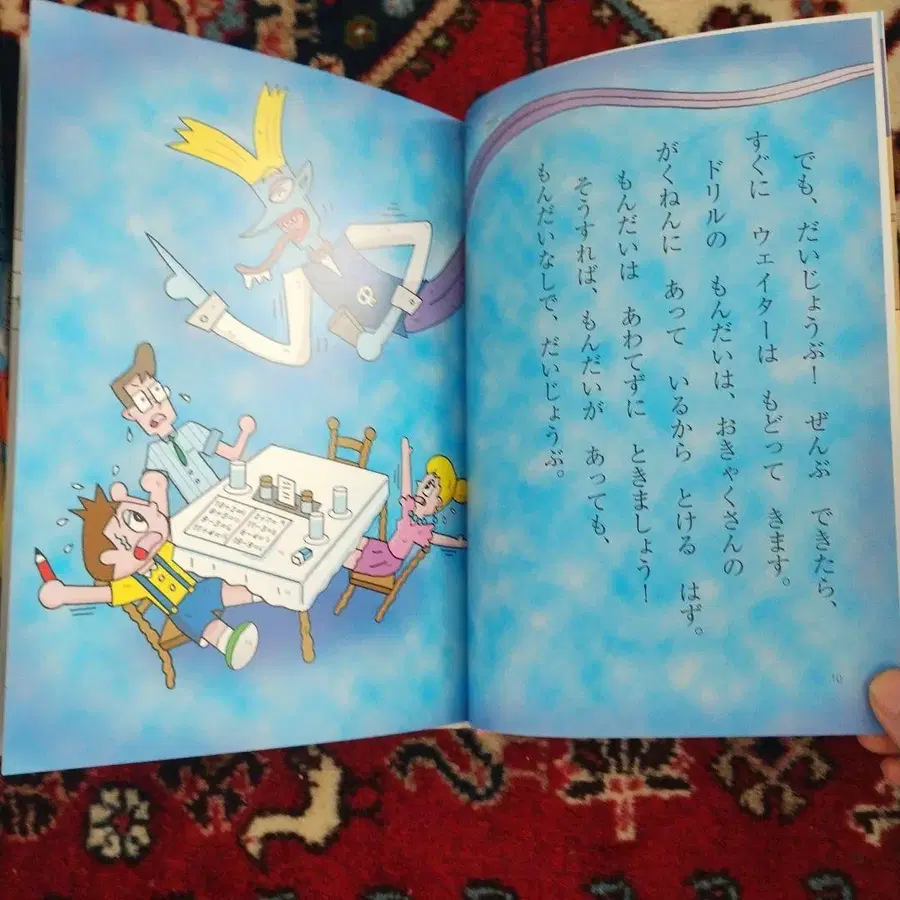 でも、だいじょうぶ！　ぜんぶ　できたら、
すぐに　ウェイターは　もどって　きます。
ドリルの　もんだいは、おきゃくさんの
がくねんに　あって　いるから　とける　はず。
もんだいは　あわてずに　ときましょう！
そうすれば、もんだいが　あっても、
もんだいなしで、だいじょうぶ。
10